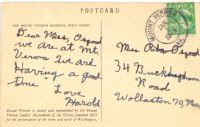 POSTCARD
THE MOUNT VERNON MANSION, WEST FRONT
Dear Miss Osgood
we are at Mt
Vernon love and
Having a good
time Love
Harold
Mount Vernon is owned and maintained by the Mount
Vernon Ladies' Association of the Union, founded 1853
for the preservation of the home and tomb of Washington.
MOUNT VERNON
Miss Rita Osgood
34 Buckingham
Road
Wollaston 70 Mass